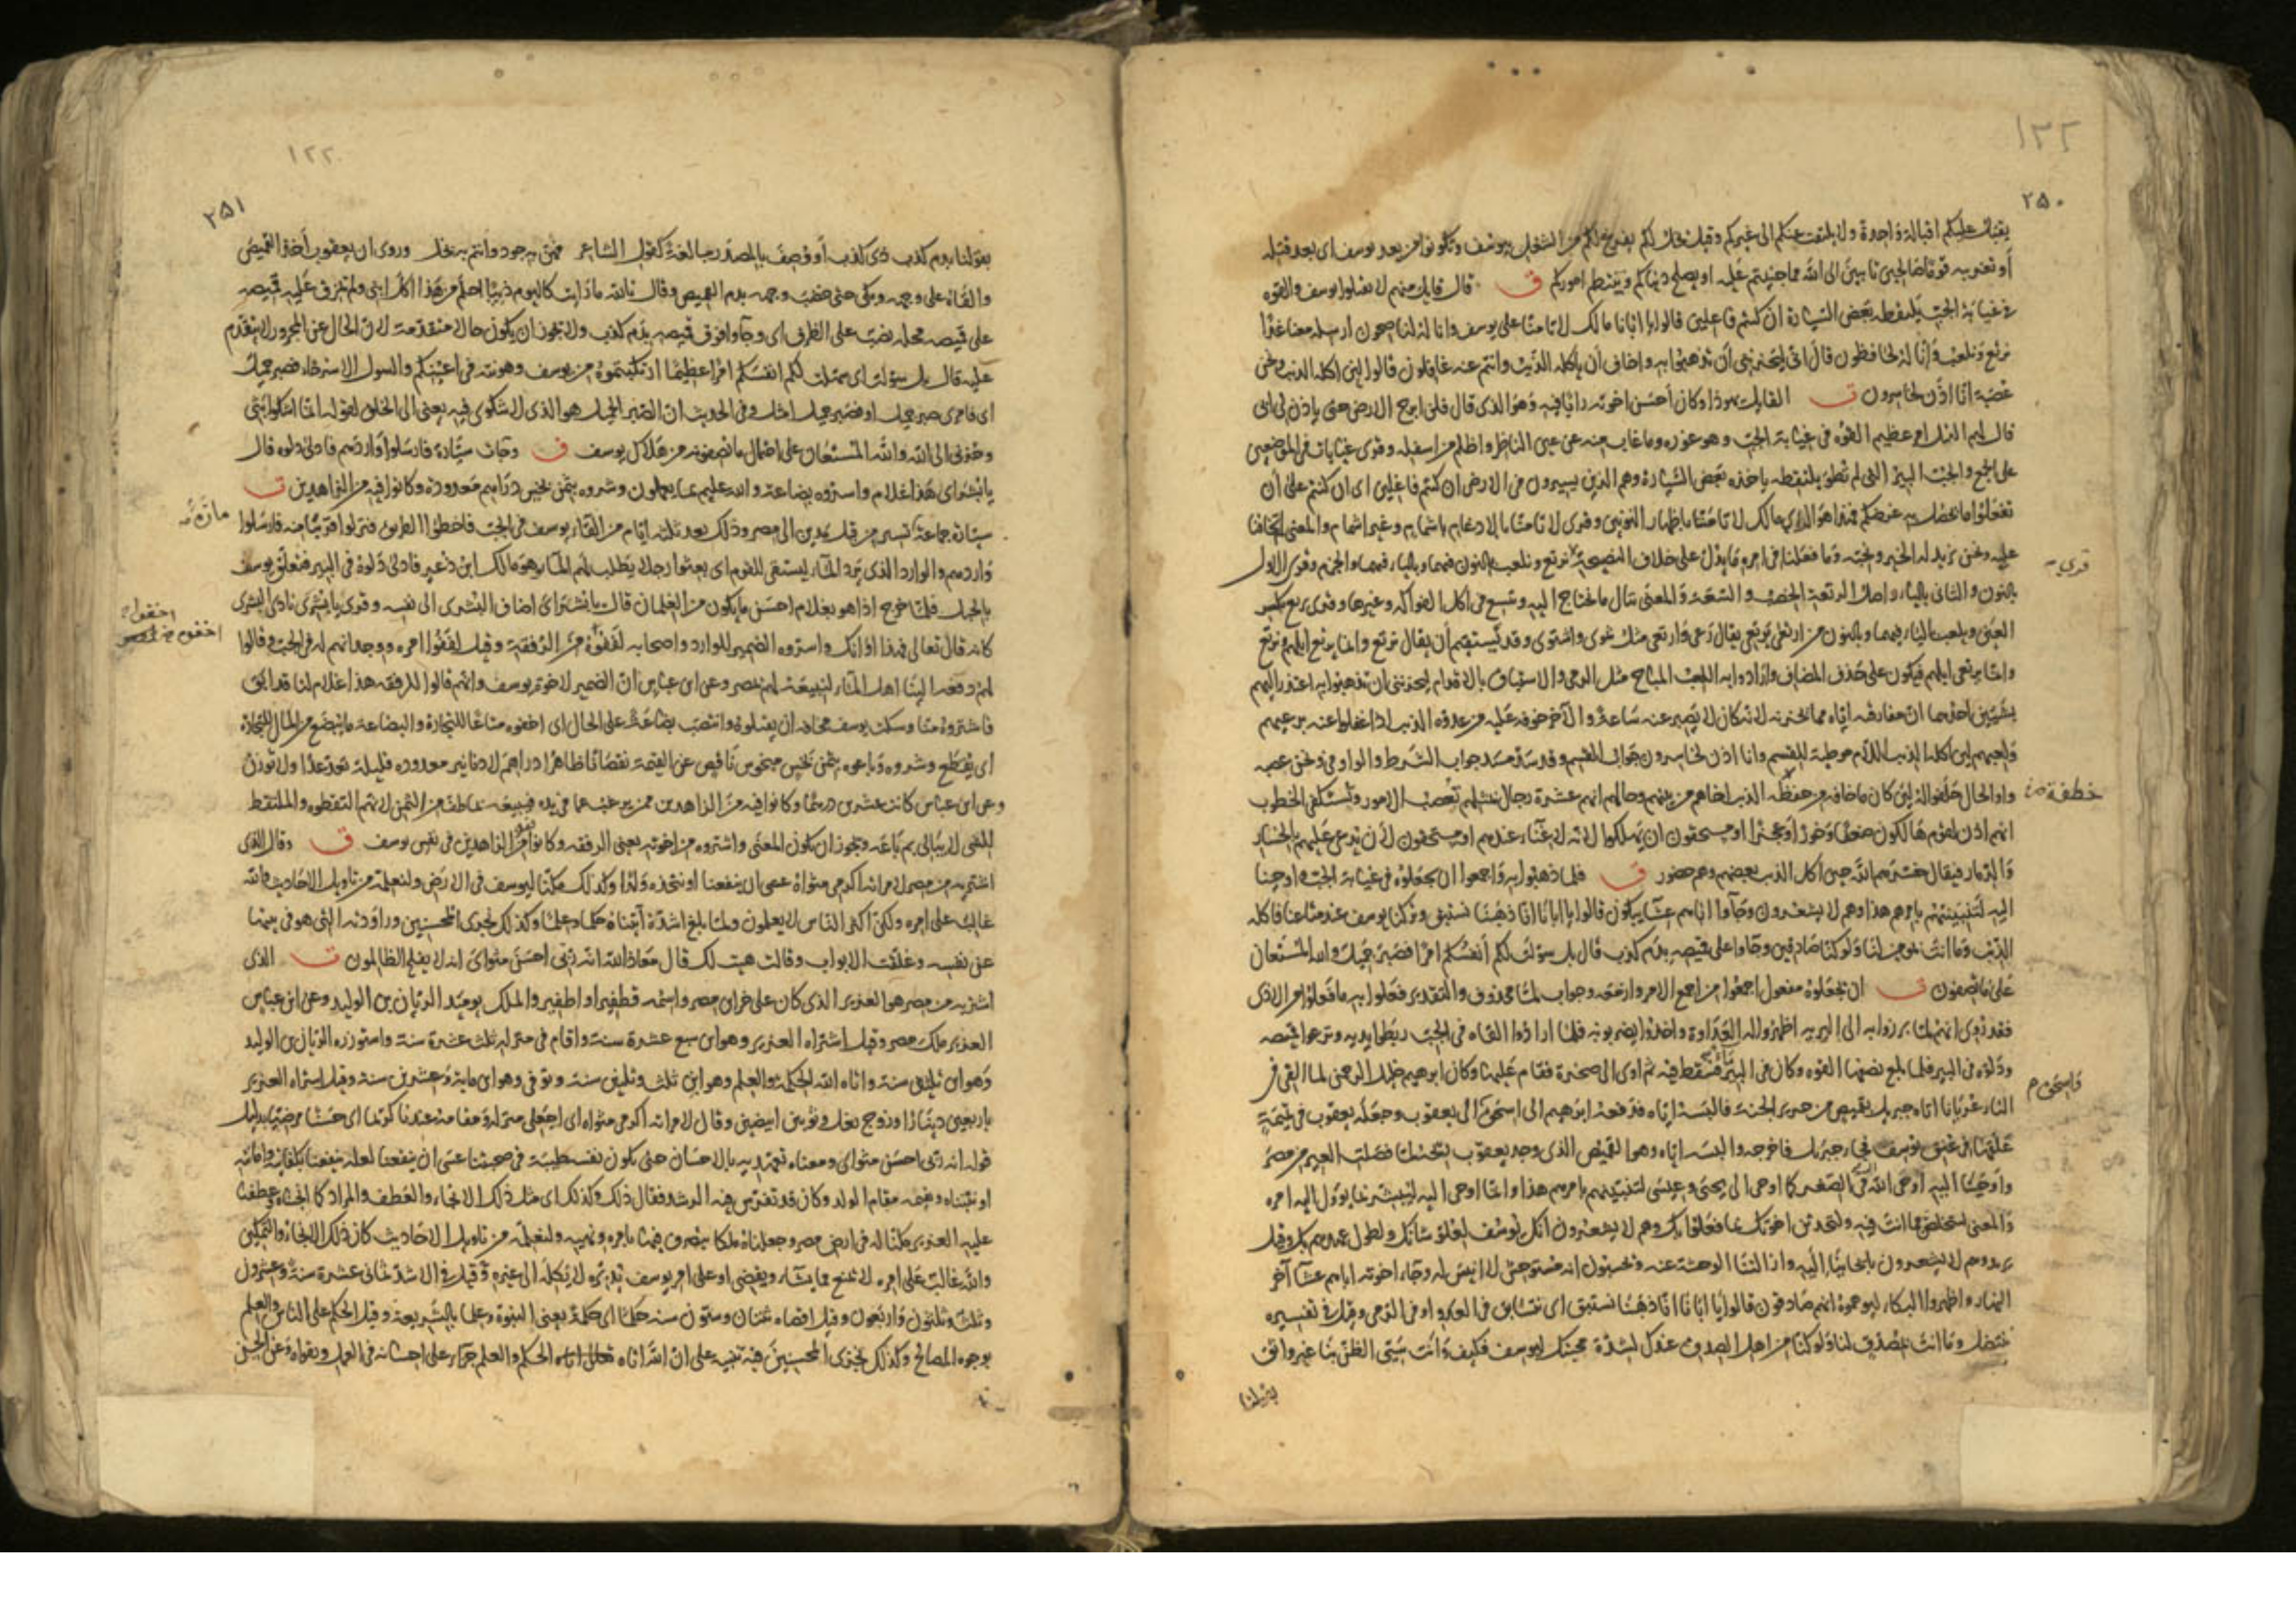 ١٣٢
٢٥٠
يقبل عليكم اقبالة واحدة ولا يلتفت عنكم الى غيركم وقيل يخل لكم يفرغ لكم من الشغل بيوسف وتكونوا من بعد يوسف اى بعد قتله
أو تغريبه قوما صالحين تائبين الى الله مما جنيتم عليه او يصلح دنياكم وينتظم اموركم ق قال قايل منهم لا تقتلوا يوسف والقوه
فى غيابة الجب يلتقطه بعض السيارة ان كنتم فاعلين قالوا يا ابانا مالك لا تامنا على يوسف وانا له لناصحون ارسله معنا غدا
نرتع ونلعب وانا له لحافظون قال انى ليحزننى أن تذهبوا به واخاف أن ياكله الذئب وانتم عنه غافلون قالوا لئن اكله الذئب ونحن
عصبة انا اذن لخاسرون ت القايل يهوذا وكان أحسن اخوته رايا فيه وهو الذى قال فلن ابرح الارض حتى ياذن لى ابى
قال لهم القتل امر عظيم القوه فى غيابة الجب وهو غوره وما غاب منه عن عين الناظر واظلم من اسفله وقرى غيابات فى الموضعين
على الجمع والجب البير التى لم تطو يلتقطه ياخذه بعض السيارة وهم الذين يسيرون فى الارض ان كنتم فاعلين اى ان كنتم على أن
تفعلوا ما يحصل به غرضكم فهذا هو الراى مالك لا تامنا باظهار النونين وقرى لا تامنا بالادغام باشمام وغير اشمام والمعنى لم تخافنا
عليه ونحن نريد له الخير ونحبه وما فعلنا فى امره ما يدل على خلاف النصيحة نرتع ونلعب بالنون فيهما وبالياء فيهما والجزم وقرى الاول
قرى
بالنون والثانى بالياء واصل الرتعة الخصب والسعة والمعنى ننال ما نحتاج اليه ونتسع فى اكل الفواكه وغيرها وقرى يرتع بكسر
العين ويلعب بالياء فيهما وبالنون من ارتعى يرتعى يقال رعى وارتعى مثل شوى واشتوى وقد يستقيم أن يقال نرتع وانما يرتع ابلهم ونرتع
وانما يرتعى ابلهم فيكون على حذف المضاف وارادوا به اللعب المباح مثل الرمى والاستباق بالاقدام ليحزننى ان تذهبوا به اعتذر اليهم
بشيئين احدهما ان مفارقته اياه مما يحزنه لانه كان لا يصبر عنه ساعة والآخر خوفه عليه من عدوة الذئب اذا غفلوا عنه برعيهم
ولعبهم لئن اكله الذئب اللام موطئة للقسم وانا اذن لخاسرون جواب القسم وقد سد مسد جواب الشرط والواو فى ونحن عصبة
واو الحال حلفوا له لئن كان ما خافه من خطفة الذئب اخاهم من بينهم وحالهم انهم عشرة رجال بمثلهم تعصب الامور وتستكفى الخطوب
خطفة
انهم اذن لقوم هالكون ضعفا وخورا وعجزا او مستحقون ان يهلكوا لانه لا غناء عندهم او مستحقون لان يدعى عليهم بالخسار
والدمار فيقال خسرهم الله حين اكل الذئب بعضهم وهم حضور ق فلما ذهبوا به واجمعوا ان يجعلوه فى غيابة الجب واوحينا
اليه لتنبئنهم بامرهم هذا وهم لا يشعرون وجآءوا اباهم عشاء يبكون قالوا يا ابانا انا ذهبنا نستبق وتركنا يوسف عند متاعنا فاكله
الذئب وما انت بمؤمن لنا ولو كنا صادقين وجاؤا على قميصه بدم كذب قال بل سولت لكم أنفسكم امرا فصبر جميل والله المستعان
على ما تصفون ت ان يجعلوه مفعول اجمعوا من اجمع الامر وازمعه وجواب لما محذوف والتقدير فعلوا به ما فعلوا من الاذى
فقد روى انهم لما برزوا به الى البرية اظهروا له العداوة واخذوا يضربونه فلما ارادوا القاه فى الجب ربطوا يديه ونزعوا قميصه
ودلوه فى البير فلما بلغ نصفها القوه وكان فى البير ماء فسقط فيه ثم اوى الى صخرة فقام عليها وكان ابرهيم خليل الرحمن لما القى فى
النار عريانا اتاه جبريل بقميص من حرير الجنة فالبسه اياه فدفعه ابرهيم الى اسحق الى يعقوب وجعله يعقوب فى تميمة
واسحق
علقها فى عنق يوسف فجاء جبريل فاخرجه والبسه اياه وهو القميص الذى وجد يعقوب ريحه لما فصلت العير من مصر
واوحينا اليه اوحى الله فى الصغر كما اوحى الى يحيى وعيسى لتنبئنهم بامرهم هذا وانما اوحى اليه ليبشر بما يؤول اليه امره
والمعنى لتتخلص مما انت فيه ولتحدثن اخوتك بما فعلوا بك وهم لا يشعرون انك يوسف لعلو شانك ولطول عهدهم بك وقيل
يريد وهم لا يشعرون بايحائنا اليه وازالتنا الوحشة عنه ويحسبون انه مستوحش لا انيس له وجآء اخوته اباهم عشاء آخر
النهار واظهروا البكاء ليوهموه انهم صادقون قالوا يا ابانا انا ذهبنا نستبق اى نتسابق فى العدو او فى الرمى وقيل فى تفسيره
ننتضل وما انت بمصدق لنا ولو كنا من اهل الصدق عندك لشدة محبتك ليوسف فكيف وانت سيئى الظن بنا غير واثق
بقولنا
١٢٢
٢٥١
بقولنا بدم كذب ذى كذب أو وصف بالمصدر مبالغة كقول الشاعر فهن به جود وانتم به بخل وروى ان يعقوب أخذ القميص
والقاه على وجهه وبكى حتى خضب وجهه بدم القميص وقال تالله ما رايت كاليوم ذئبا احلم من هذا اكل ابنى ولم يمزق عليه قميصه
على قميصه محله نصب على الظرف اى وجاؤا فوق قميصه بدم كذب ولا يجوز ان يكون حالا متقدمة لان الحال عن المجرور لا يتقدم
عليه قال بل سولت اى سهلت لكم انفسكم امرا عظيما ارتكبتموه من يوسف وهونته فى اعينكم والسول الاسترخاء فصبر جميل
اى فامرى صبر جميل او فصبر جميل امثل وفى الحديث ان الصبر الجميل هو الذى لا شكوى فيه يعنى الى الخلق لقوله انما اشكو بثى
وحزنى الى الله والله المستعان على احتمال ما تصفونه من هلاك يوسف ق وجاءت سيارة فارسلوا واردهم فادلى دلوه قال
يا بشراى هذا غلام واسروه بضاعة والله عليم بما يعملون وشروه بثمن بخس دراهم معدودة وكانوا فيه من الزاهدين ت
سيارة جماعة تسير من قبل مدين الى مصر وذلك بعد ثلثه ايام من القاء يوسف فى الجب فاخطؤا الطريق فنزلوا قريبا منه فارسلوا
واردهم والوارد الذى يرد المآء ليستقى للقوم اى بعثوا رجلا يطلب لهم المآء وهو مالك ابن ذعر فادلى دلوه فى البير فتعلق يوسف
بالحبل فلما خرج اذا هو بغلام احسن ما يكون من الغلمان قال يا بشراى اضاف البشرى الى نفسه وقرى يا بشرى نادى البشرى
كانه قال تعالى فهذا اوانك واسروه الضمير للوارد واصحابه اخفوه من الرفقة وقيل اخفوا امره ووجدانهم له فى الجب وقالوا
لهم دفعه الينا اهل المآء لنبيعه لهم بمصر وعن ابن عباس ان الضمير لاخوة يوسف وانهم قالوا للرفقه هذا غلام لنا قد ابق
فاشتروه منا وسكت يوسف مخافة ان يقتلوه وانتصب بضاعة على الحال اى اخفوه متاعا للتجارة والبضاعة ما بضع من المال للتجارة
اى يقطع وشروه وباعوه بثمن بخس مبخوس ناقص عن القيمة نقصانا ظاهرا دراهم لا دنانير معدوده قليلة تعد عدا ولا توزن
وعن ابن عباس كانت عشرين درهما وكانوا فيه من الزاهدين ممن يرغب عما فى يده فيبيعه بما طف من الثمن لانهم التقطوه والملتقط
للشى لا يبالى بم باعه ويجوز ان يكون المعنى واشتروه من اخوته يعنى الرفقه وكانوا فيه من الزاهدين فى نفس يوسف ق وقال الذى
اشتريه من مصر لامراته اكرمى مثواه عسى ان ينفعنا او نتخذه ولدا وكذلك مكنا ليوسف فى الارض ولنعلمه من تاويل الاحاديث والله
غالب على امره ولكن اكثر الناس لا يعلمون ولما بلغ اشده آتيناه حكما وعلما وكذلك نجزى المحسنين وراودته التى هو فى بيتها
عن نفسه وغلقت الابواب وقالت هيت لك قال معاذ الله انه ربى احسن مثواى انه لا يفلح الظالمون ت الذى
اشتريه من مصر هو العزيز الذى كان على خزاين مصر واسمه قطفير او اطفير والملك يومئذ الريان بن الوليد وعن ابن عباس
العزيز ملك مصر وقيل اشتراه العزيز وهو ابن سبع عشرة سنة واقام فى منزله ثلث عشرة سنة واستوزره الريان بن الوليد
وهو ابن ثلثين سنة واتاه الله الحكمة والعلم وهو ابن ثلث وثلثين سنة وتوفى وهو ابن ماية وعشرين سنة وقيل اشتراه العزيز
باربعين دينارا وزوج نعل وثوبين ابيضين وقال لامراته اكرمى مثواه اى اجعلى منزله ومقامه عندنا كريما اى حسنا مرضيا بدليل
قوله انه ربى احسن مثواى ومعناه تعهديه بالاحسان حتى يكون نفسه طيبة فى صحبتنا عسى ان ينفعنا لعله ينفعنا بكفايته وامانته
او نتبناه ونقيمه مقام الولد وكان قد تفرس فيه الرشد فقال ذلك وكذلك اى مثل ذلك الانجاء والعطف والمراد كما انجيناه وعطفنا
عليه العزيز مكنا له فى ارض مصر وجعلناه ملكا يتصرف فيها بامره ونهيه ولنعلمه من تاويل الاحاديث كان ذلك الانجاء والتمكين
والله غالب على امره لا يمنع مما يشاء ويقضى او على امر يوسف يدبره لا يكله الى غيره وقيل فى الاشد ثمانى عشرة سنة وعشرون
وثلث وثلثون واربعون وقيل اقصاه ثنتان وستون سنه حكما اى حكمة يعنى النبوة وعلما بالشريعة وقيل الحكم على الناس والعلم
بوجوه المصالح وكذلك نجزى المحسنين فيه تنبيه على ان الله اتاه الحكم والعلم جزاء على احسانه فى العمل وتقواه وعن الحسن
مارة
اخفوا